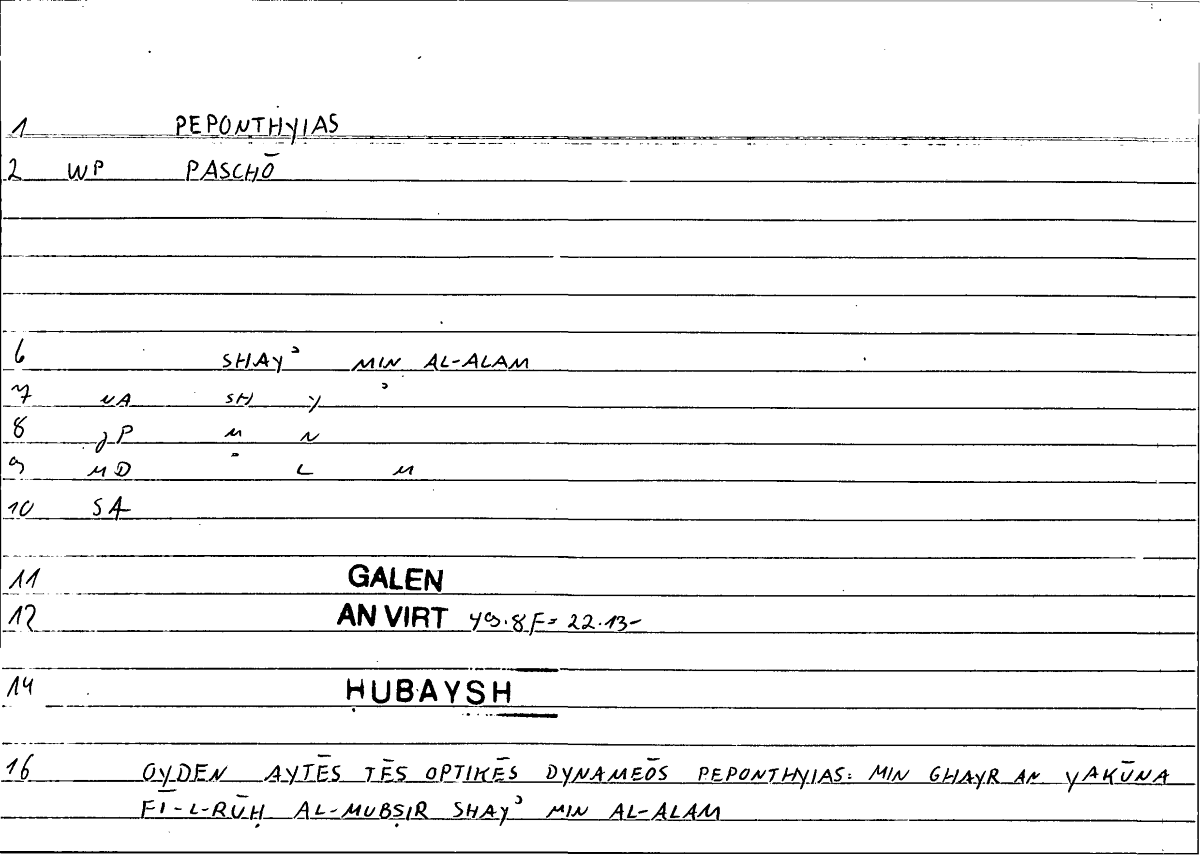 1 PEPONTHYIAS
2 WP PASCHŌ
6 SHAYʾ MIN AL-ALAM
7 NA SH Y ʾ
8 JP M N
9 MD ʾ L M
10 SA
11 GALEN
12 AN VIRT 49.8F = 22.13-
14 ḤUBAYSH
16 OYDEN AYTĒS TĒS OPTIKĒS DYNAMEŌS PEPONTHYIAS: MIN GHAYR AN YAKŪNA
FĪ-L-RŪḤ AL-MUBṢIR SHAYʾ MIN AL-ALAM